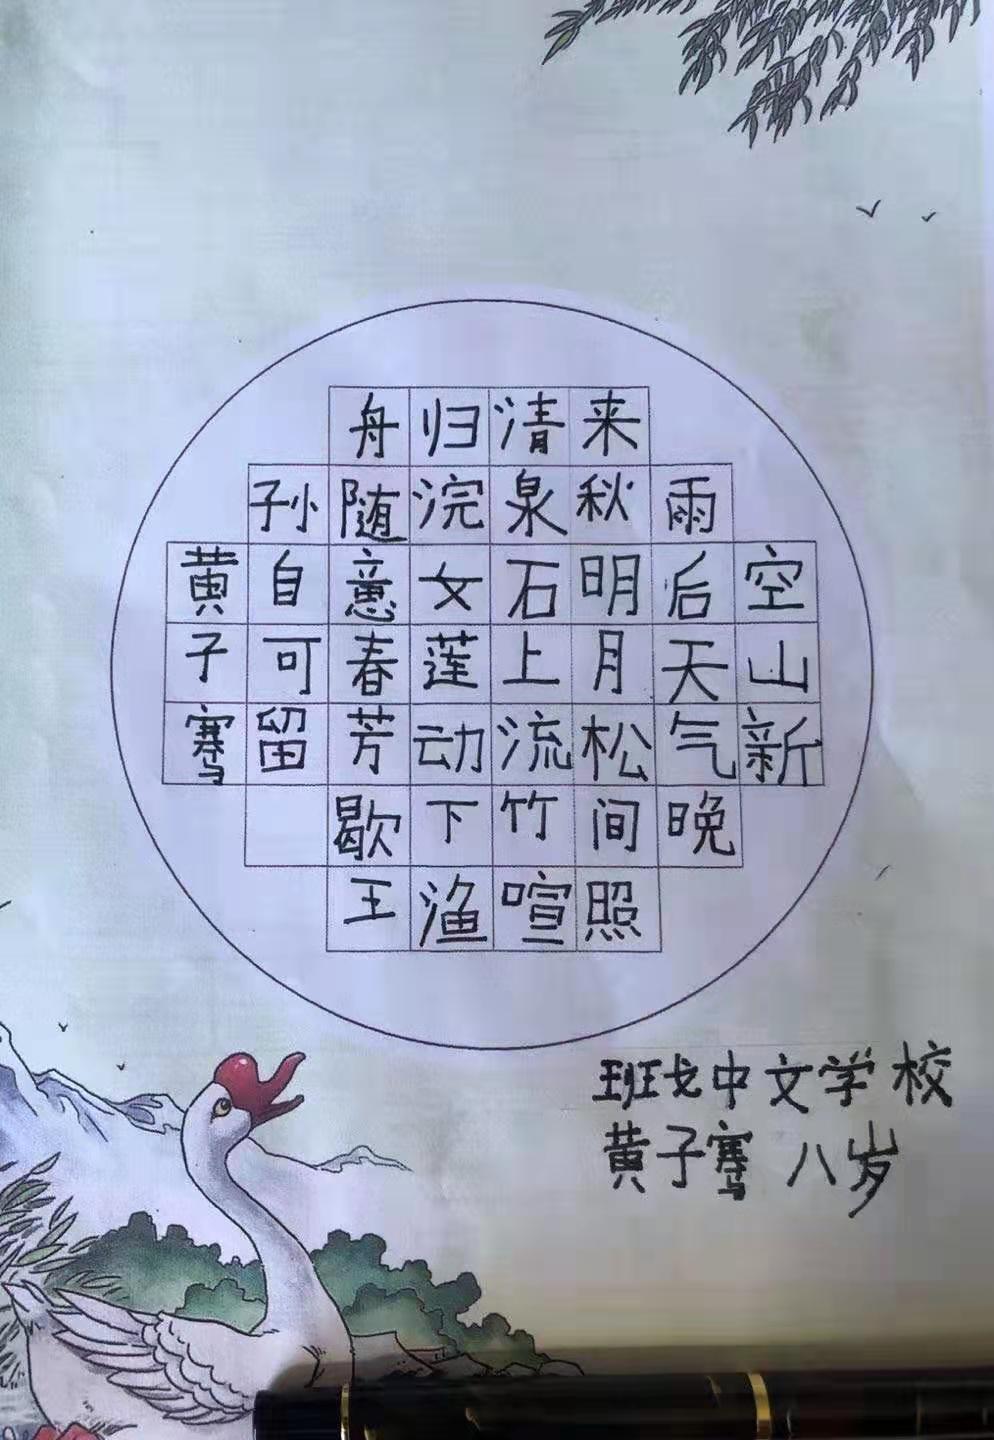 空山新
雨后天气晚
来秋明月松间照
清泉石上流竹喧
归浣女莲动下渔
舟随意春芳歇王
孙自可留
黄子骞
班戈中文学校
黄子骞 八岁